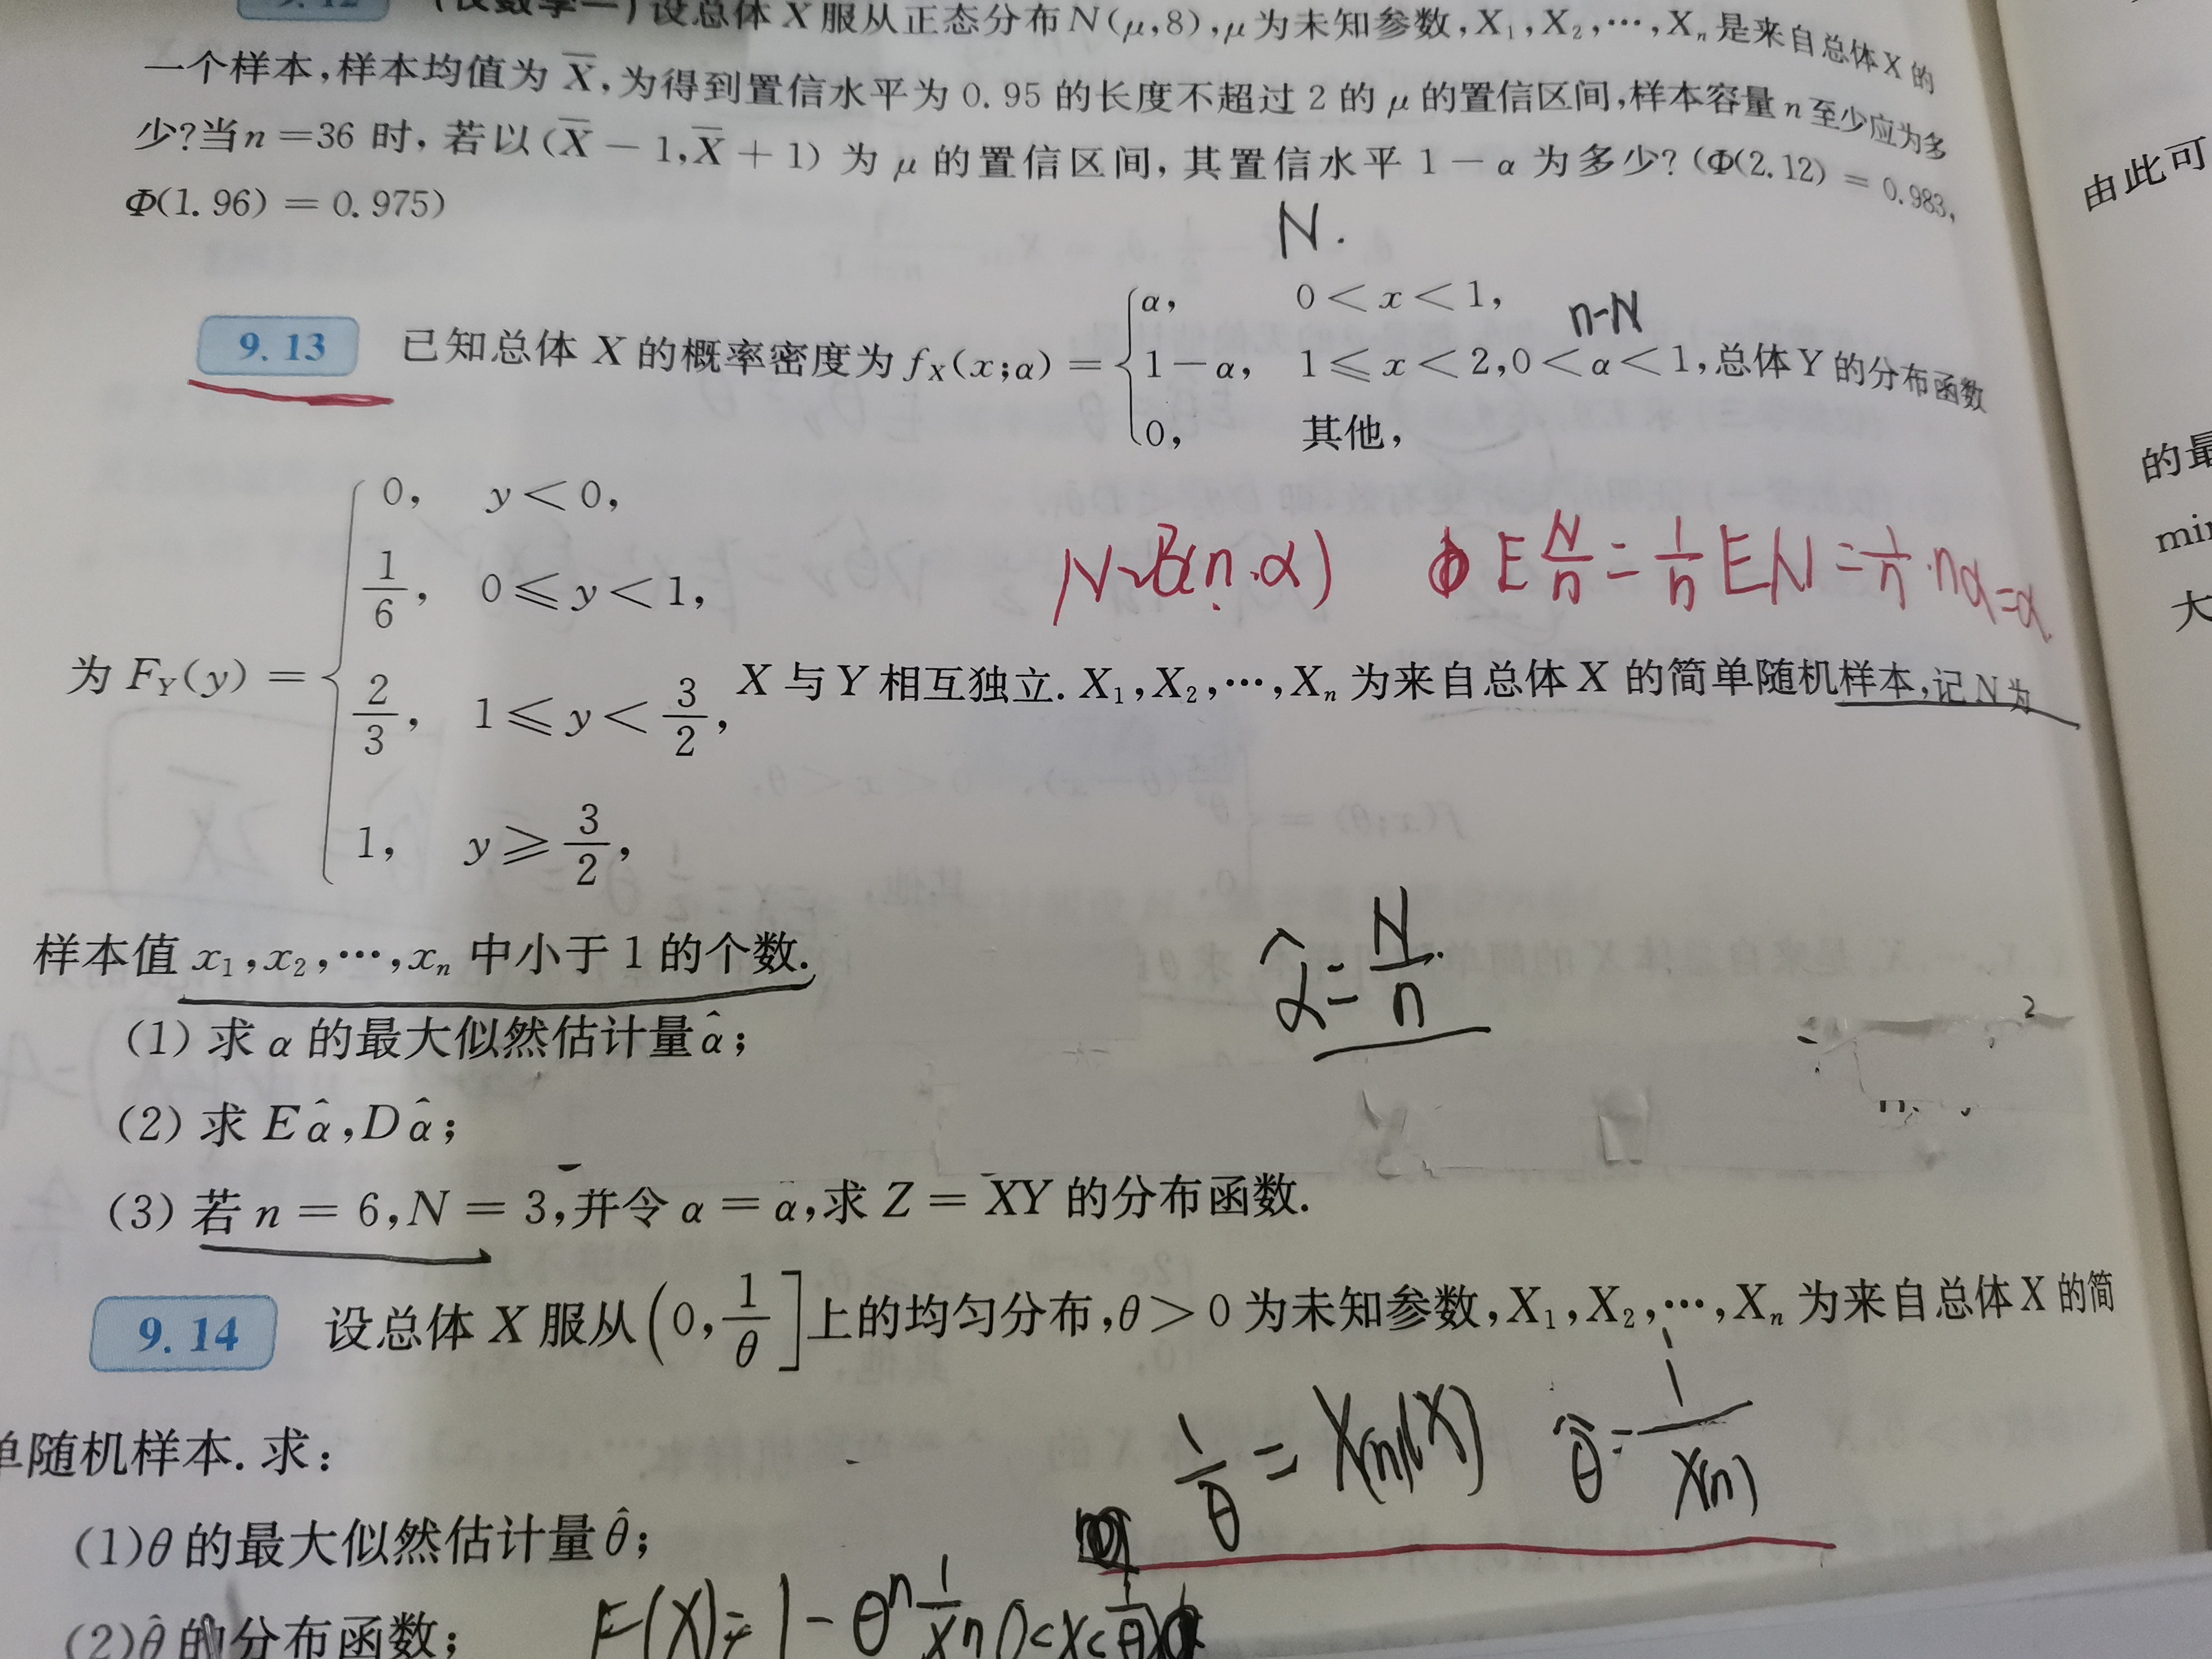 9.12 (仅数学一) 设总体 X 服从正态分布 N(μ,8),μ 为未知参数,X₁,X₂,…,Xₙ 是来自总体 X 的
一个样本,样本均值为 X̄,为得到置信水平为 0.95 的长度不超过 2 的 μ 的置信区间,样本容量 n 至少应为多
少?当 n=36 时,若以 (X̄-1,X̄+1) 为 μ 的置信区间,其置信水平 1-α 为多少?(Φ(2.12)=0.983,
Φ(1.96)=0.975)
N.
n-N
9.13 已知总体 X 的概率密度为 f_X(x;α)= { α, 0<x<1,
1-α, 1≤x<2, 0<α<1,总体 Y 的分布函数
0, 其他,
为 F_Y(y)= { 0, y<0,
1/6, 0≤y<1,
N~B(n.α) E N/n = 1/n EN = 1/n · nα = α
2/3, 1≤y<3/2, X 与 Y 相互独立. X₁,X₂,…,Xₙ 为来自总体 X 的简单随机样本,记 N 为
1, y≥3/2,
样本值 x₁,x₂,…,xₙ 中小于 1 的个数.
α̂=N/n
(1) 求 α 的最大似然估计量 α̂;
(2) 求 Eα̂,Dα̂;
(3) 若 n=6,N=3,并令 α=α̂,求 Z=XY 的分布函数.
9.14 设总体 X 服从 (0,1/θ] 上的均匀分布,θ>0 为未知参数,X₁,X₂,…,Xₙ 为来自总体 X 的简
单随机样本. 求:
1/θ = X(n) θ̂=1/X(n)
(1)θ 的最大似然估计量 θ̂;
(2)θ̂ 的分布函数;
由此可
的最
min
大